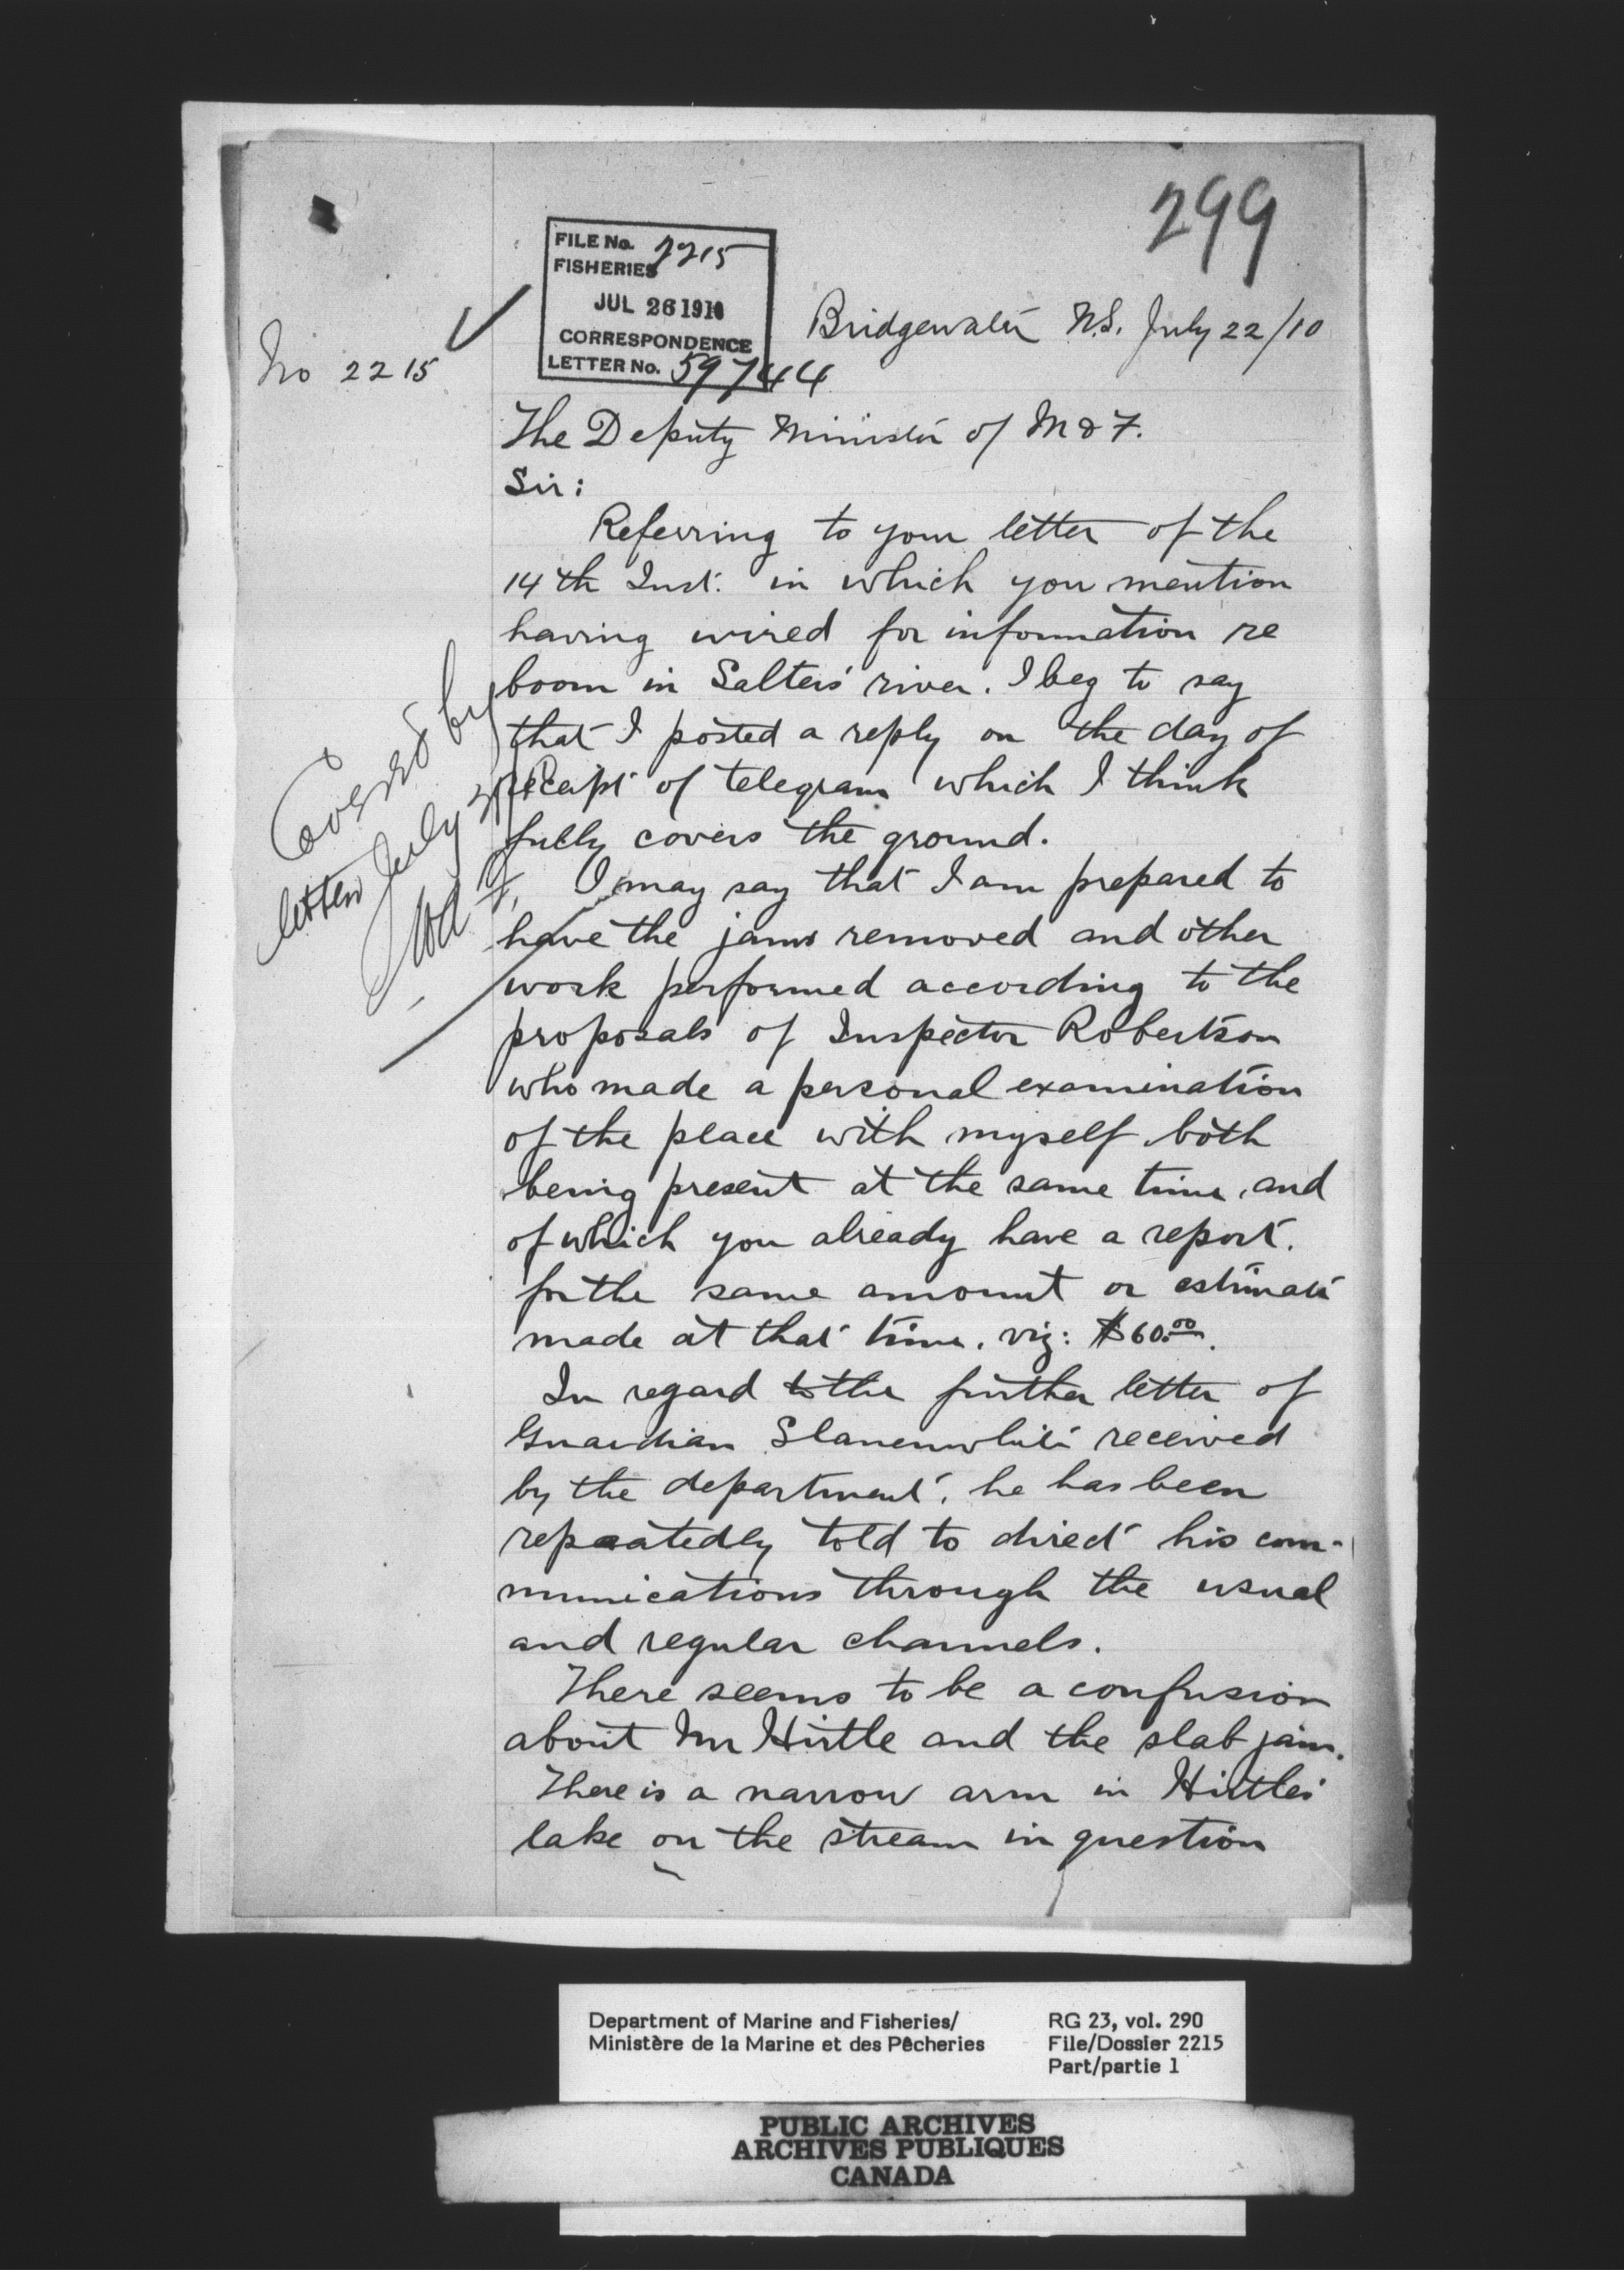 299
FILE No. 2215
FISHERIES
JUL 26 1910
CORRESPONDENCE
LETTER No. 59744
No 2215
Bridgewater N.S. July 22/10
The Deputy Minister of M & F.
Sir:
Referring to your letter of the
14th Inst. in which you mention
having wired for information re
boom in Salters' river. I beg to say
that I posted a reply on the day of
receipt of telegram which I think
fully covers the ground.
Covered by
letter July
I may say that I am prepared to
have the jams removed and other
work performed according to the
proposals of Inspector Robertson
who made a personal examination
of the place with myself both
being present at the same time, and
of which you already have a report.
for the same amount or estimate
made at that time. viz: $60.00.
In regard to the further letter of
Guardian Slauenwhite received
by the department, he has been
repeatedly told to direct his com-
munications through the usual
and regular channels.
There seems to be a confusion
about Mr Hirtle and the slab jam.
There is a narrow arm in Hirtles'
lake on the stream in question
Department of Marine and Fisheries/
Ministère de la Marine et des Pêcheries
RG 23, vol. 290
File/Dossier 2215
Part/partie 1
PUBLIC ARCHIVES
ARCHIVES PUBLIQUES
CANADA